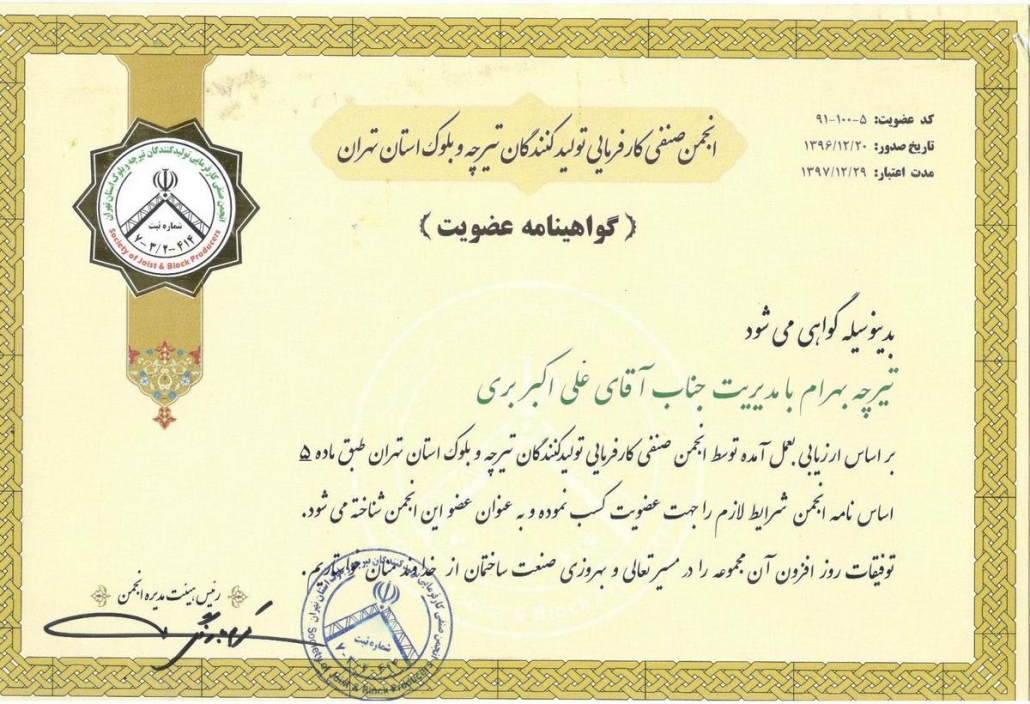 کد عضویت: ۵-۱۰۰-۹۱
تاریخ صدور: ۱۳۹۶/۱۲/۲۰
مدت اعتبار: ۱۳۹۷/۱۲/۲۹
انجمن صنفی کارفرمایی تولیدکنندگان تیرچه و بلوک استان تهران
(گواهینامه عضویت)
انجمن صنفی کارفرمایی تولیدکنندگان تیرچه و بلوک استان تهران
شماره ثبت
۷-۳/۲-۴۱۴
Society of Joist & Block Producers
بدینوسیله گواهی می شود
تیرچه بهرام با مدیریت جناب آقای علی اکبر بری
بر اساس ارزیابی بعمل آمده توسط انجمن صنفی کارفرمایی تولیدکنندگان تیرچه و بلوک استان تهران طبق ماده ۵
اساس نامه انجمن شرایط لازم را جهت عضویت کسب نموده و به عنوان عضو این انجمن شناخته می شود.
توفیقات روز افزون آن مجموعه را در مسیر تعالی و بهروزی صنعت ساختمان از خداوند منان خواستاریم.
رئیس هیئت مدیره انجمن
انجمن صنفی کارفرمایی تولیدکنندگان تیرچه و بلوک استان تهران
شماره ثبت
۷-۳/۲-۴۱۴
Society of Joist & Block Producers